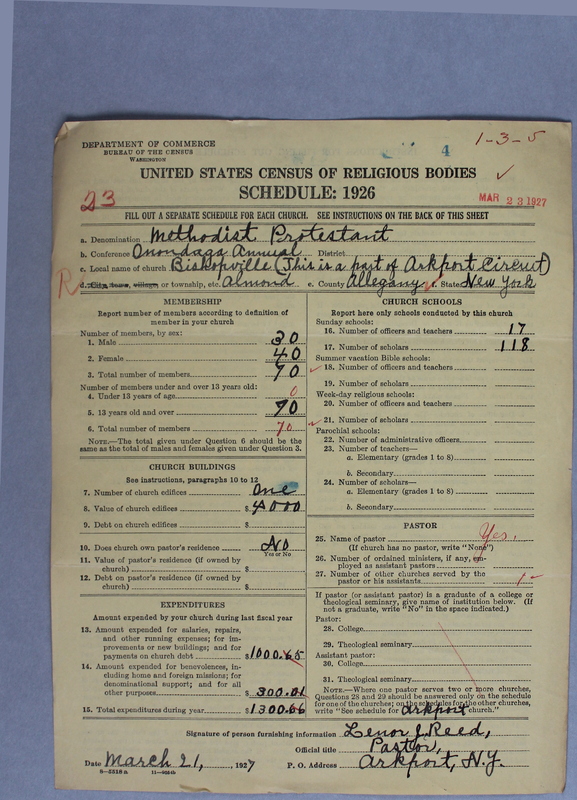 DEPARTMENT OF COMMERCE
BUREAU OF THE CENSUS
WASHINGTON
4
1-3-5
UNITED STATES CENSUS OF RELIGIOUS BODIES
SCHEDULE: 1926
23
MAR 23 1927
FILL OUT A SEPARATE SCHEDULE FOR EACH CHURCH. SEE INSTRUCTIONS ON THE BACK OF THIS SHEET
a. Denomination Methodist Protestant
b. Conference Onondaga Annual District
c. Local name of church Bishopville (This is a part of Arkport Circuit)
R
d. City, town, village, or township, etc. Almond e. County Allegany f. State New York
MEMBERSHIP
Report number of members according to definition of
member in your church
Number of members, by sex:
1. Male 30
2. Female 40
3. Total number of members 70
Number of members under and over 13 years old:
4. Under 13 years of age 0
5. 13 years old and over 70
6. Total number of members 70
NOTE.—The total given under Question 6 should be the
same as the total of males and females given under Question 3.
CHURCH BUILDINGS
See instructions, paragraphs 10 to 12
7. Number of church edifices One
8. Value of church edifices $ 4000
9. Debt on church edifices $
10. Does church own pastor's residence No
Yes or No
11. Value of pastor's residence (if owned by
church) $
12. Debt on pastor's residence (if owned by
church) $
EXPENDITURES
Amount expended by your church during last fiscal year
13. Amount expended for salaries, repairs,
and other running expenses; for im-
provements or new buildings; and for
payments on church debt $ 1000.65
14. Amount expended for benevolences, in-
cluding home and foreign missions; for
denominational support; and for all
other purposes $ 300.01
15. Total expenditures during year $ 1300.66
CHURCH SCHOOLS
Report here only schools conducted by this church
Sunday schools:
16. Number of officers and teachers 17
17. Number of scholars 118
Summer vacation Bible schools:
18. Number of officers and teachers
19. Number of scholars
Week-day religious schools:
20. Number of officers and teachers
21. Number of scholars
Parochial schools:
22. Number of administrative officers
23. Number of teachers—
a. Elementary (grades 1 to 8)
b. Secondary
24. Number of scholars—
a. Elementary (grades 1 to 8)
b. Secondary
PASTOR
25. Name of pastor Yes.
(If church has no pastor, write "None")
26. Number of ordained ministers, if any, em-
ployed as assistant pastors
27. Number of other churches served by the
pastor or his assistants 1-
If pastor (or assistant pastor) is a graduate of a college or
theological seminary, give name of institution below. (If
not a graduate, write "No" in the space indicated.)
Pastor:
28. College
29. Theological seminary
Assistant pastor:
30. College
31. Theological seminary
NOTE.—Where one pastor serves two or more churches,
Questions 28 and 29 should be answered only on the schedule
for one of the churches; on the schedules for the other churches,
write "See schedule for Arkport church."
Signature of person furnishing information Lenor J. Reed,
Official title Pastor,
Date March 21, 1927 P. O. Address Arkport, N.Y.
8-5318a 11-9324b